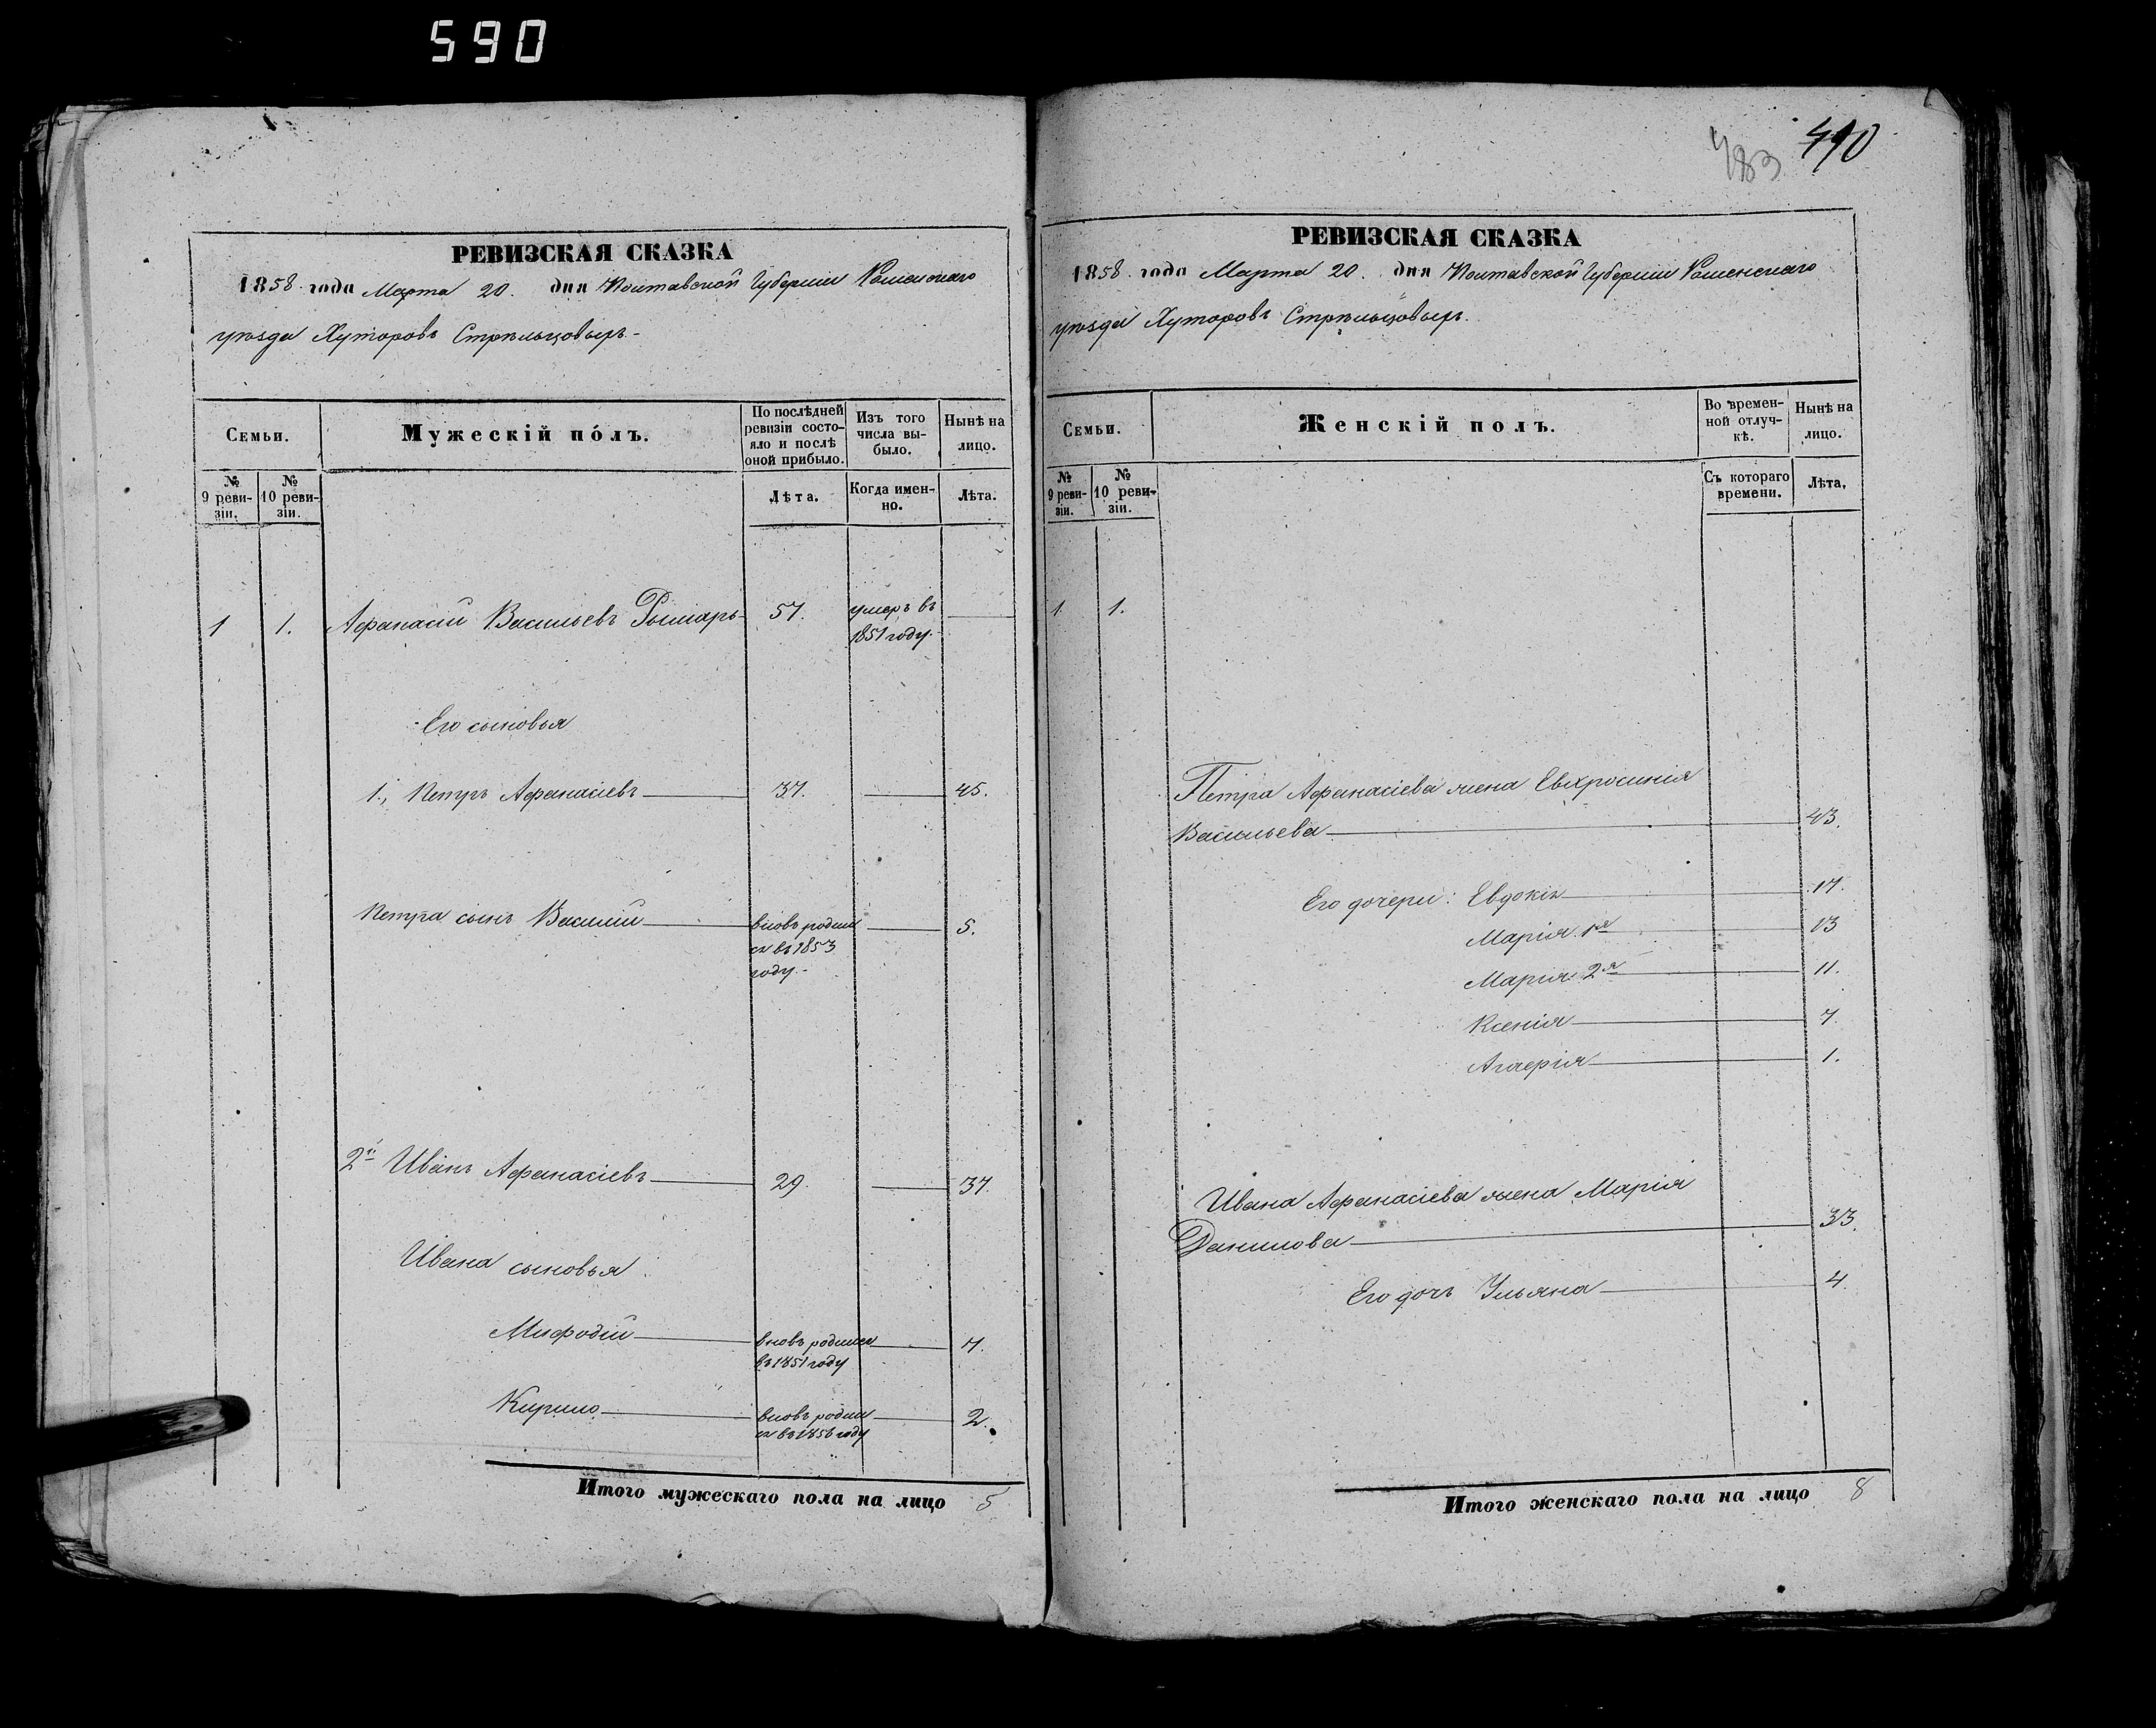 590
РЕВИЗСКАЯ СКАЗКА
1858 года Марта 20. дня Полтавской Губерніи Роменскаго
уѣзда Хуторовъ Стрѣльцовыхъ
Семьи.
Мужескій полъ.
По послѣдней
ревизіи состо-
яло и послѣ
оной прибыло.
Изъ того
числа вы-
было.
Нынѣ на
лицо.
№
9 реви-
зіи.
№
10 реви-
зіи.
Лѣта.
Когда имен-
но.
Лѣта.
1 1. Афанасій Васильевъ Рымарь 57. умеръ въ
1851 году.
Его сыновья
1., Петръ Афанасіевъ 37. 45.
Петра сынъ Василій вновь родил 5.
ся въ 1853
году.
2й Иванъ Афанасіевъ 29 37.
Ивана сыновья
Мифодій вновь родился 7.
въ 1851 году
Кирило вновь родил 2.
ся въ 1856 году
Итого мужескаго пола на лицо 5
483 490
РЕВИЗСКАЯ СКАЗКА
1858. года Марта 20. дня Полтавской Губерніи Роменскаго
уѣзда Хуторовъ Стрѣльцовыхъ.
Семьи.
Женскій полъ.
Во времен-
ной отлуч-
кѣ.
Нынѣ на
лицо.
№
9 реви-
зіи.
№
10 реви-
зіи.
Съ котораго
времени.
Лѣта.
1. 1.
Петра Афанасіева жена Евхросинія
Васильева 43.
Его дочери: Евдокія 17.
Марія 1я 13
Марія 2я 11.
Ксенія 7.
1.
Ивана Афанасіева жена Марія
Данилова 33.
Его дочь Ульяна 4.
Итого женскаго пола на лицо 8